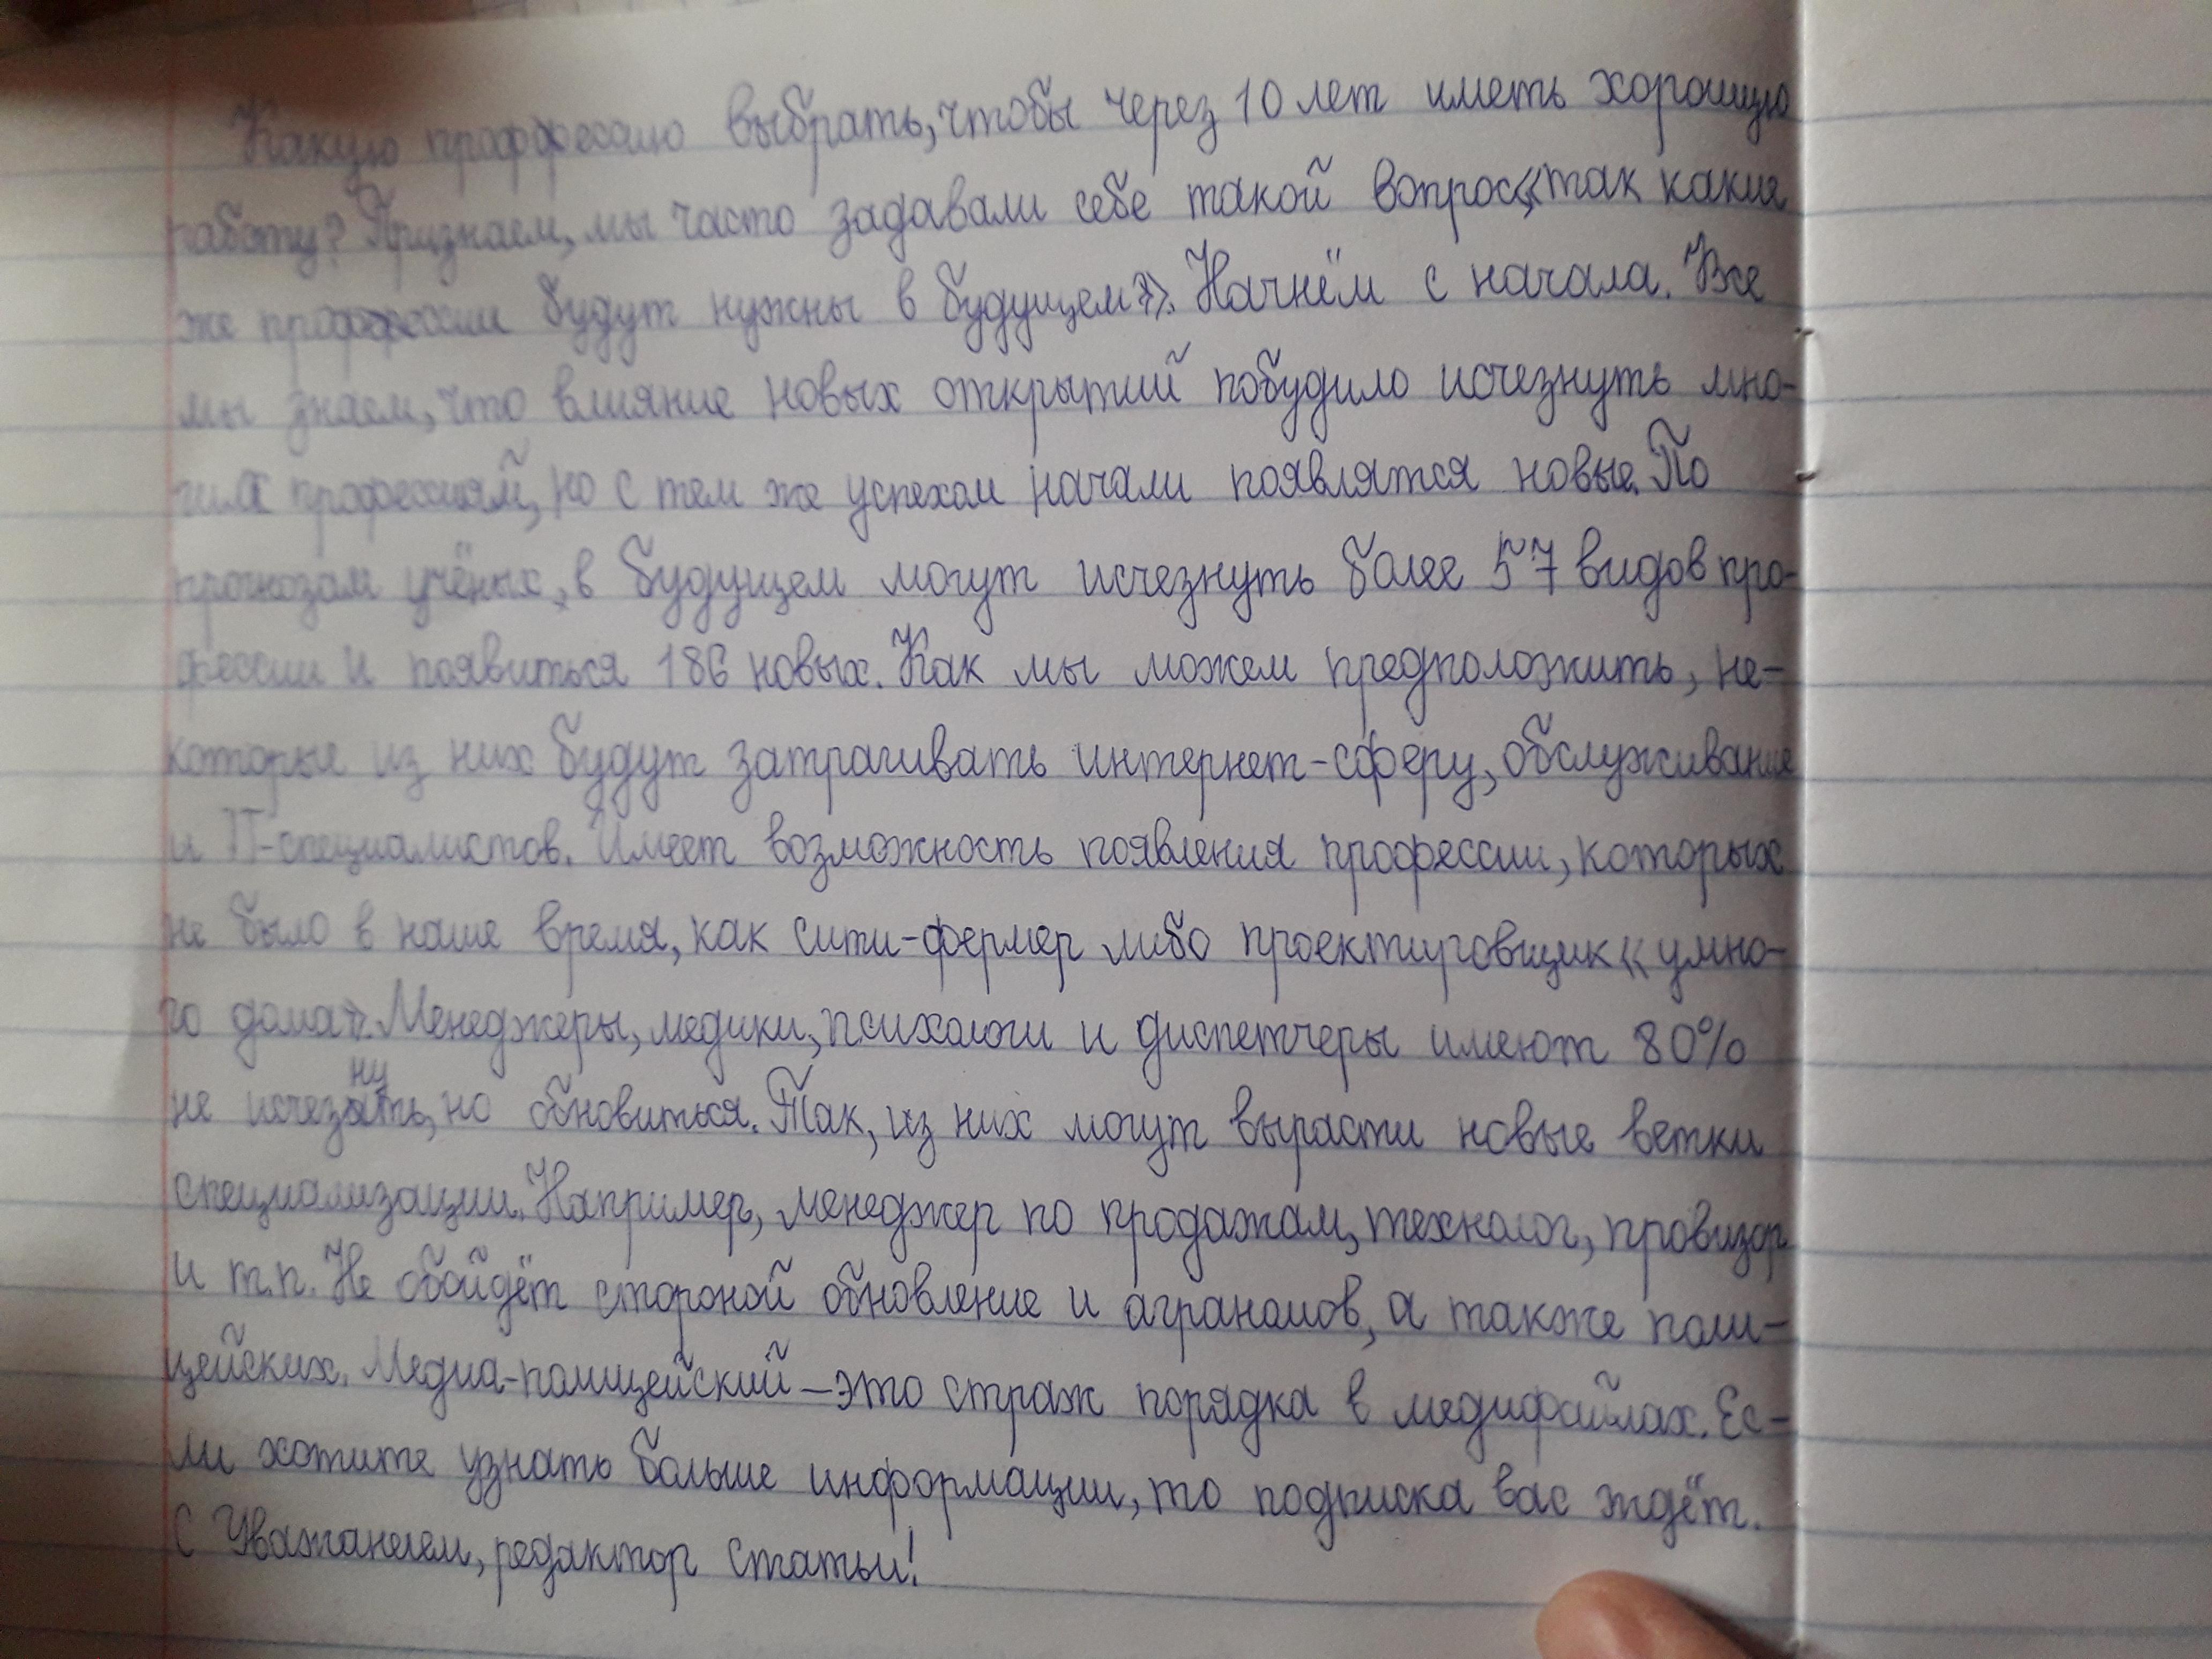 Какую проффессию выбрать, чтобы через 10 лет иметь хорошую
работу? Признаем, мы часто задавали себе такой вопрос, «так какие
же проффессии будут нужны в будущем?». Начнём с начала. Все
мы знаем, что влияние новых открытий побудило исчезнуть мно-
гим профессиям, но с тем же успехом начали появлятся новые. По
прогнозам учёных, в будущем могут исчезнуть более 57 видов про-
фессии и появиться 186 новых. Как мы можем предположить, не-
которые из них будут затрагивать интернет-сферу, обслуживание
и IT-специалистов. Имеет возможность появления профессии, которых
не было в наше время, как сити-фермер либо проектировщик « умно-
го дома». Менеджеры, медики, психологи и диспетчеры имеют 80%
не исчезнуть, но обновиться. Так, из них могут вырасти новые ветки
специализации. Например, менеджер по продажам, технолог, провизор
и т.п. Не обойдёт стороной обновление и аграномов, а также поли-
цейских. Медиа-полицейский – это страж порядка в медифайлах. Ес-
ли хотите узнать больше информации, то подписка вас ждёт.
С Уважанием, редактор статьи!